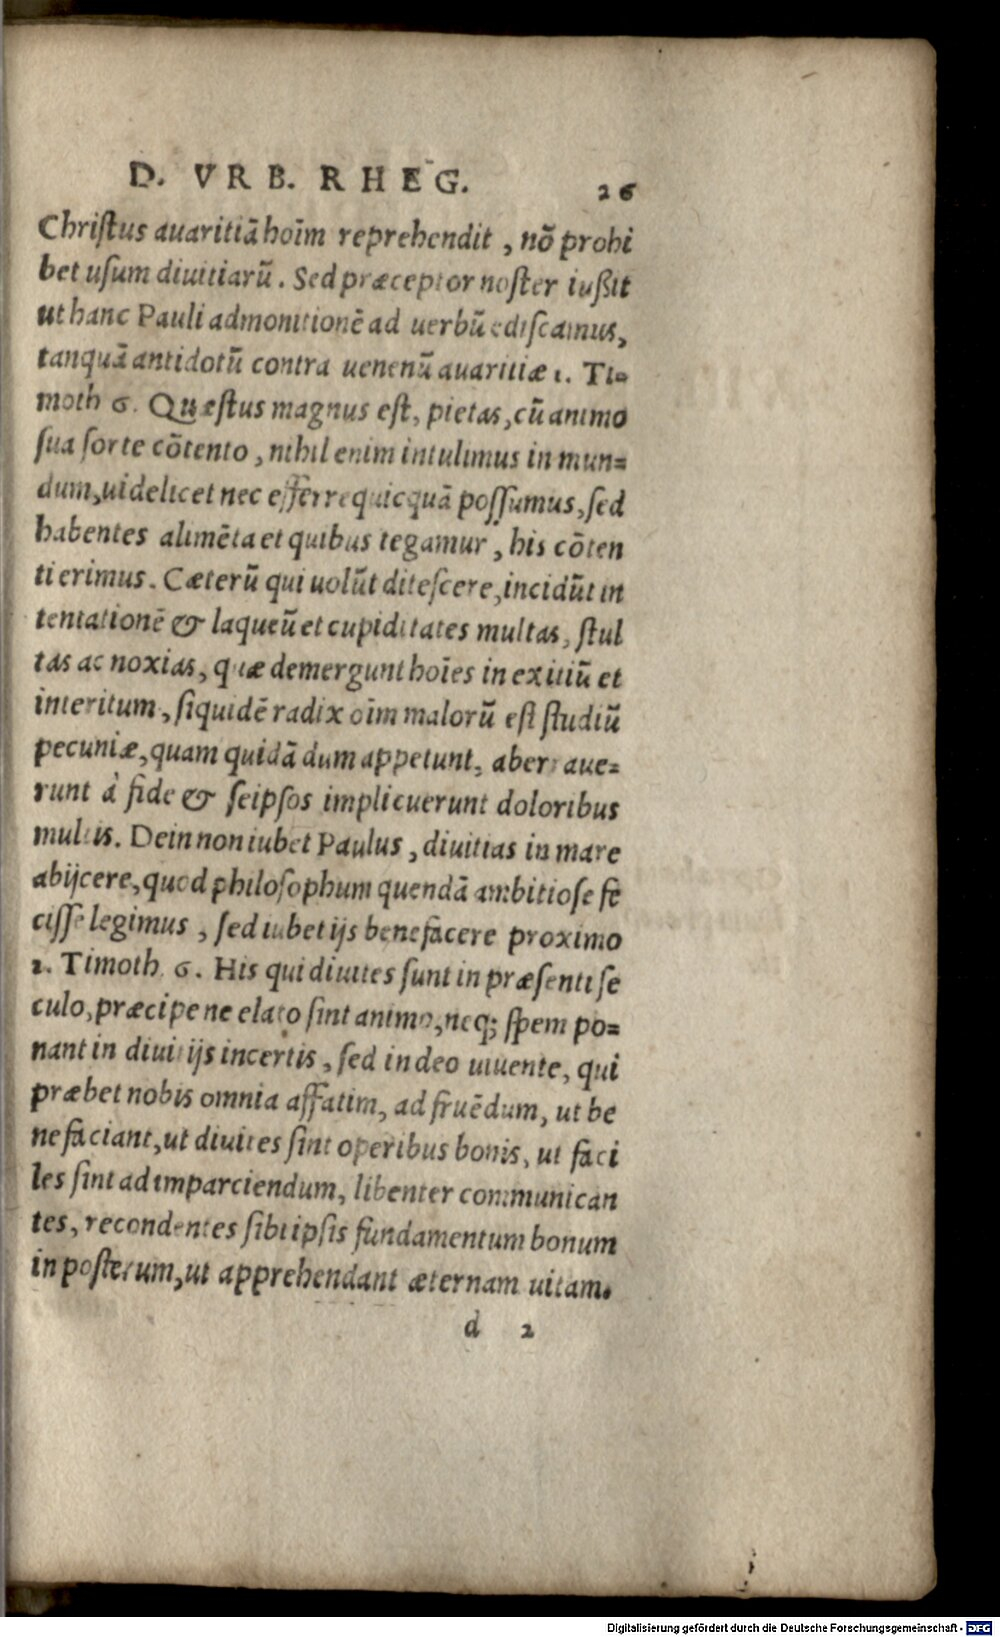 D. VRB. RHEG. 26
Christus auaritiā hoīm reprehendit, nō prohi
bet usum diuitiarū. Sed præceptor noster iußit
ut hanc Pauli admonitionē ad uerbū ediscamus,
tanquā antidotū contra uenenū auaritiæ 1. Ti-
moth 6. Quæstus magnus est, pietas, cū animo
sua sorte cōtento, nihil enim intulimus in mun=
dum, uidelicet nec efferre quicquā possumus, sed
habentes alimēta et quibus tegamur, his cōten
ti erimus. Cæterū qui uolūt ditescere, incidūt in
tentationē & laqueū et cupiditates multas, stul
tas ac noxias, quæ demergunt hoīes in exitiū et
interitum, siquidē radix oīm malorū est studiū
pecuniæ, quam quidā dum appetunt, aberraue=
runt à fide & seipsos implicuerunt doloribus
multis. Dein non iubet Paulus, diuitias in mare
abijcere, quod philosophum quendā ambitiose fe
cisse legimus, sed iubet ijs benefacere proximo
1. Timoth. 6. His qui diuites sunt in præsenti se
culo, præcipe ne elato sint animo, neq; spem po=
nant in diuitijs incertis, sed in deo uiuente, qui
præbet nobis omnia affatim, ad fruēdum, ut be
nefaciant, ut diuites sint operibus bonis, ut faci
les sint ad imparciendum, libenter communican
tes, recondentes sibi ipsis fundamentum bonum
in posterum, ut apprehendant æternam uitam.
d 2
Digitalisierung gefördert durch die Deutsche Forschungsgemeinschaft - DFG